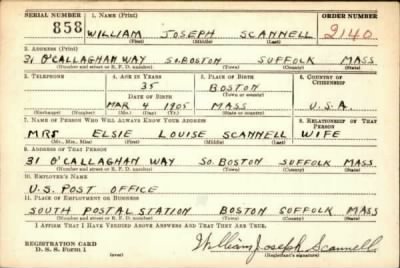 SERIAL NUMBER 1. NAME (Print) ORDER NUMBER
858 WILLIAM JOSEPH SCANNELL 2140
(First) (Middle) (Last)
2. ADDRESS (Print)
31 O'CALLAGHAN WAY SO. BOSTON SUFFOLK MASS.
(Number and street or R. F. D. number) (Town) (County) (State)
3. TELEPHONE 4. AGE IN YEARS 5. PLACE OF BIRTH 6. COUNTRY OF CITIZENSHIP
35 BOSTON
DATE OF BIRTH (Town or county)
MAR 4 1905 MASS U.S.A.
(Exchange) (Number) (Mo.) (Day) (Yr.) (State or country)
7. NAME OF PERSON WHO WILL ALWAYS KNOW YOUR ADDRESS 8. RELATIONSHIP OF THAT PERSON
MRS ELSIE LOUISE SCANNELL WIFE
(Mr., Mrs., Miss) (First) (Middle) (Last)
9. ADDRESS OF THAT PERSON
31 O'CALLAGHAN WAY SO. BOSTON SUFFOLK MASS.
(Number and street or R. F. D. number) (Town) (County) (State)
10. EMPLOYER'S NAME
U.S. POST OFFICE
11. PLACE OF EMPLOYMENT OR BUSINESS
SOUTH POSTAL STATION BOSTON SUFFOLK MASS
(Number and street or R. F. D. number) (Town) (County) (State)
I AFFIRM THAT I HAVE VERIFIED ABOVE ANSWERS AND THAT THEY ARE TRUE.
REGISTRATION CARD
D. S. S. Form 1 William Joseph Scannell
(Registrant's signature)